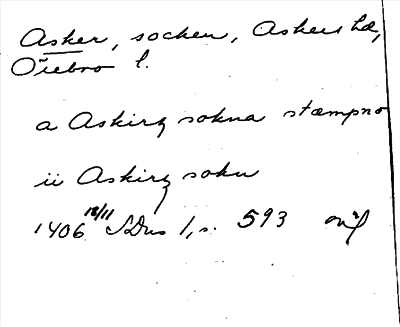 Asker, socken, Askers hd,
Örebro l.
a Askirz sokna stæmpno
ii Askirz sokn
1406 18/11 SDns 1, s. 593 orig